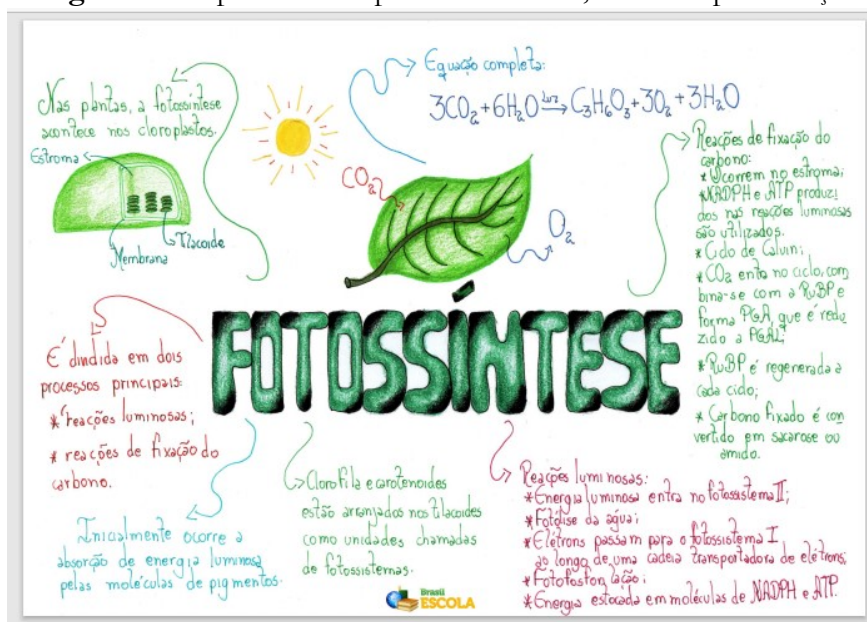 Nas plantas, a fotossíntese
acontece nos cloroplastos.
Estroma
Tilacoide
Membrana
Equação completa:
3CO₂+6H₂O luz→ C₃H₆O₃+3O₂+3H₂O
CO₂
O₂
FOTOSSÍNTESE
Reações de fixação do
carbono:
* Ocorrem no estroma;
* NADPH e ATP produzi
dos nas reações luminosas
são utilizados.
* Ciclo de Calvin;
* CO₂ entra no ciclo, com
bina-se com a RuBP e
forma PGA, que é redu
zido a PGAL;
* RuBP é regenerada a
cada ciclo;
* Carbono fixado é con
vertido em sacarose ou
amido.
É dividida em dois
processos principais:
* reações luminosas;
* reações de fixação do
carbono.
Inicialmente ocorre a
absorção de energia luminosa
pelas moléculas de pigmentos.
Clorofila e carotenoides
estão arranjados nos tilacoides
como unidades chamadas
de fotossistemas.
Reações luminosas:
* Energia luminosa entra no fotossistema II;
* Fotólise da água;
* Elétrons passam para o fotossistema I
ao longo de uma cadeia transportadora de elétrons;
* Fotofosforilação;
* Energia estocada em moléculas de NADPH e ATP.
Brasil
ESCOLA